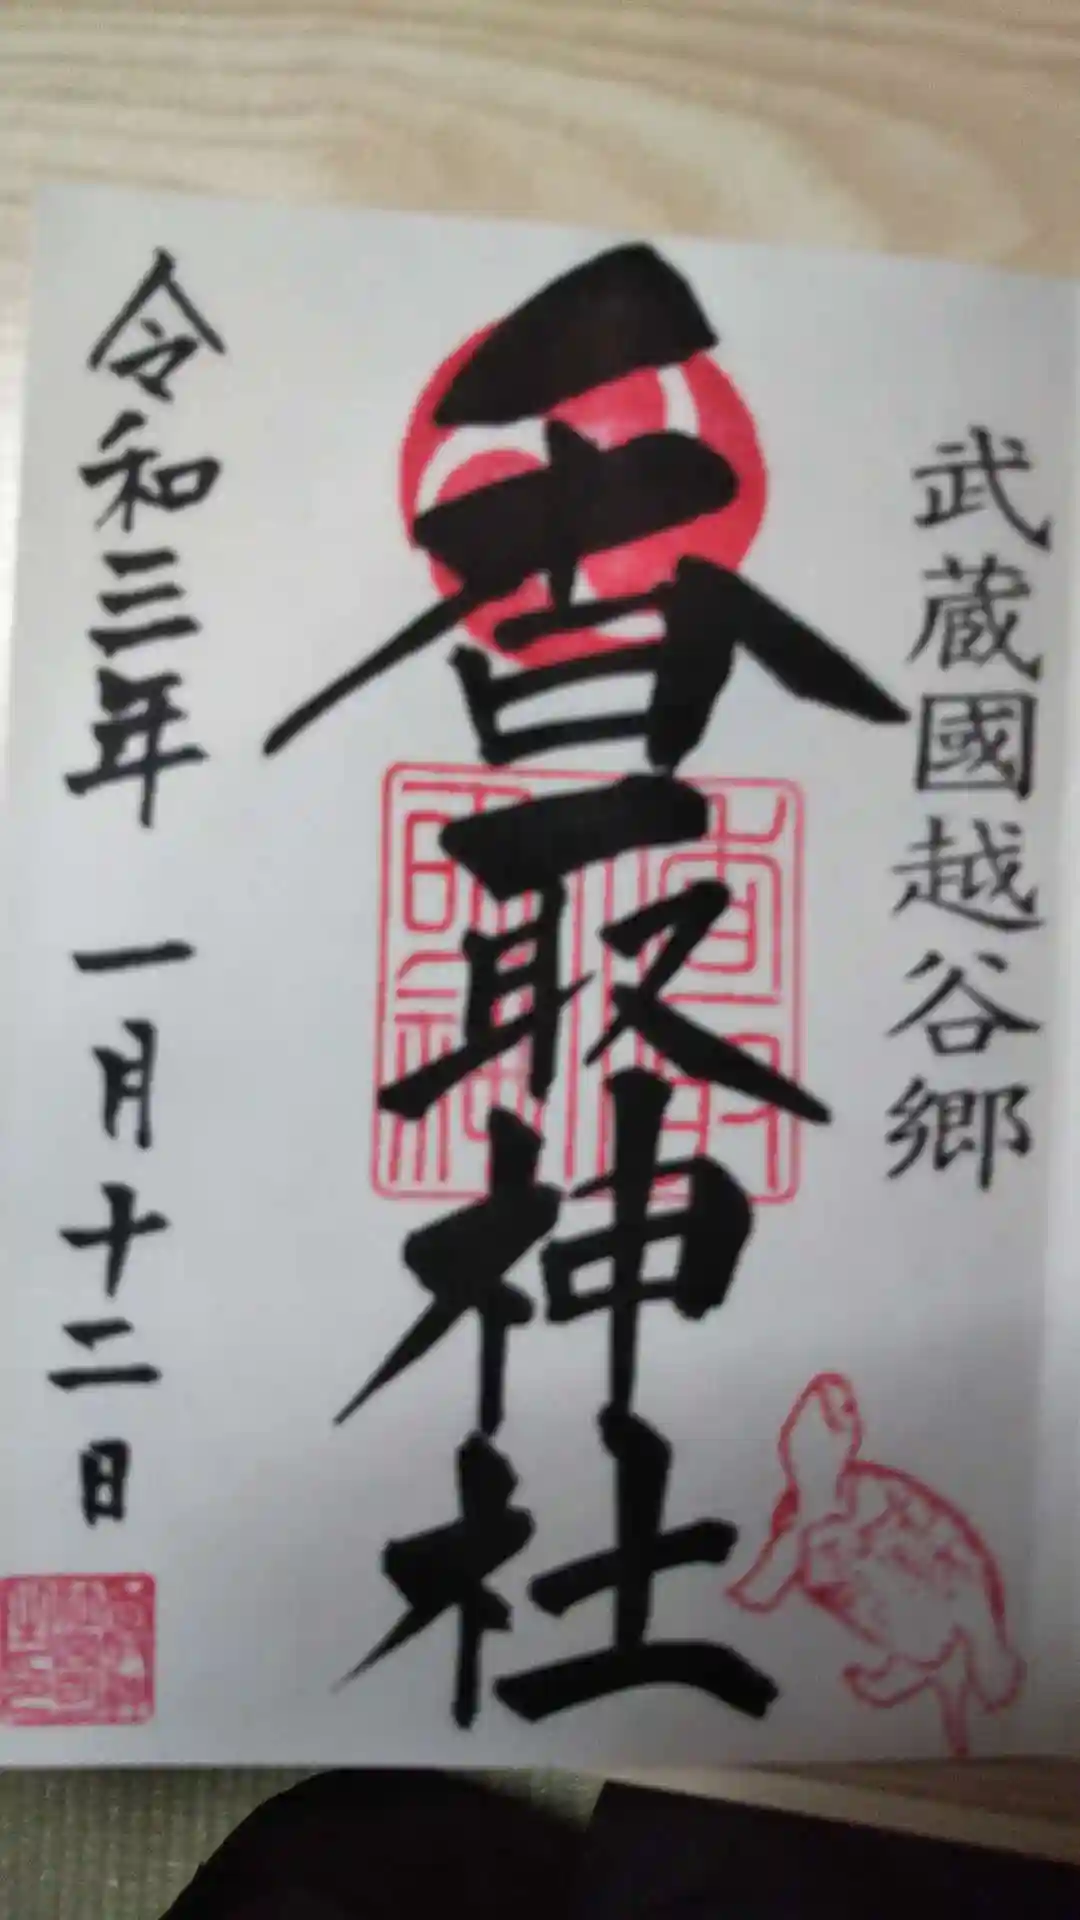 武蔵國越谷郷
香取神社
令和三年 一月十二日